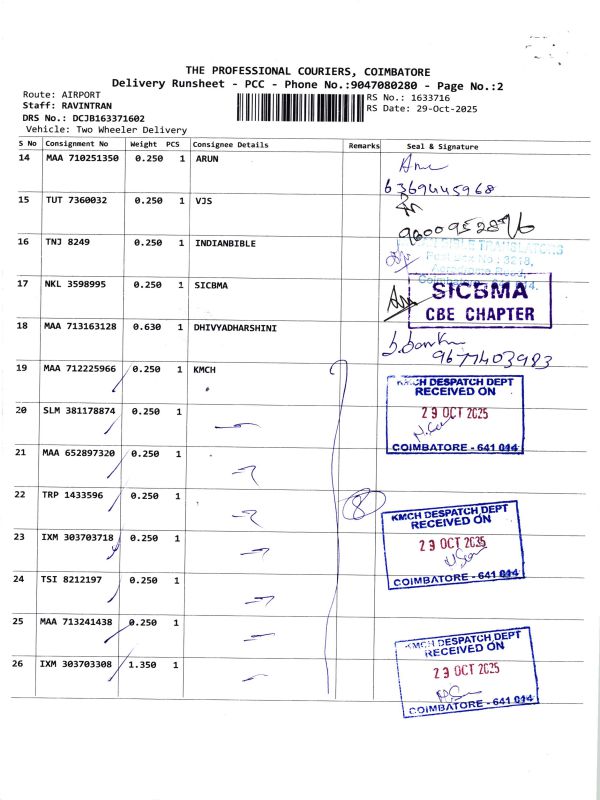 THE PROFESSIONAL COURIERS, COIMBATORE
Delivery Runsheet - PCC - Phone No.:9047080280 - Page No.:2
Route: AIRPORT
RS No.: 1633716
Staff: RAVINTRAN
RS Date: 29-Oct-2025
DRS No.: DCJB163371602
Vehicle: Two Wheeler Delivery
S No Consignment No Weight PCS Consignee Details Remarks Seal & Signature
14 MAA 710251350 0.250 1 ARUN
6369445968
15 TUT 7360032 0.250 1 VJS
9600952876
16 TNJ 8249 0.250 1 INDIANBIBLE
TRANSLATORS
Post Box No : 3218,
Road,
17 NKL 3598995 0.250 1 SICBMA
SICBMA
CBE CHAPTER
18 MAA 713163128 0.630 1 DHIVYADHARSHINI
9677403983
19 MAA 712225966 0.250 1 KMCH
KMCH DESPATCH DEPT
RECEIVED ON
29 OCT 2025
COIMBATORE - 641 014
20 SLM 381178874 0.250 1
21 MAA 652897320 0.250 1
22 TRP 1433596 0.250 1
8
KMCH DESPATCH DEPT
RECEIVED ON
29 OCT 2025
COIMBATORE - 641 014
23 IXM 303703718 0.250 1
24 TSI 8212197 0.250 1
25 MAA 713241438 0.250 1
KMCH DESPATCH DEPT
RECEIVED ON
29 OCT 2025
COIMBATORE - 641 014
26 IXM 303703308 1.350 1